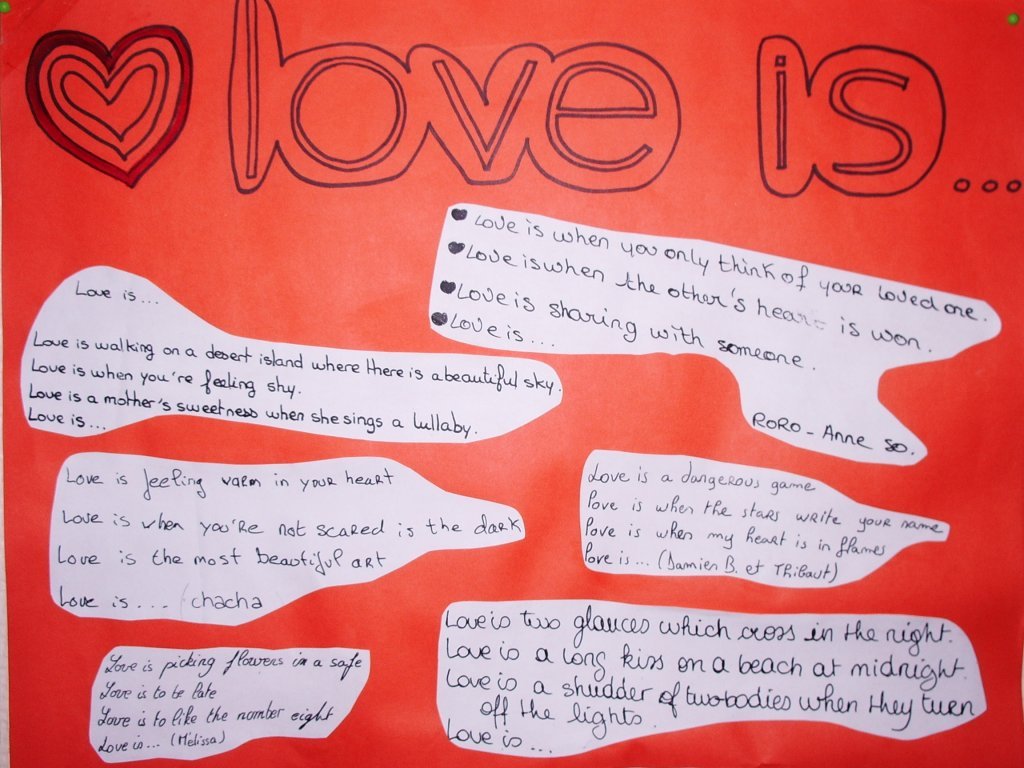 love is...
Love is when you only think of your loved one.
Love is when the other's heart is won.
Love is sharing with someone.
Love is...
RORO - Anne So.
Love is...
Love is walking on a desert island where there is a beautiful sky.
Love is when you're feeling shy.
Love is a mother's sweetness when she sings a lullaby.
Love is...
Love is feeling warm in your heart
Love is when you're not scared is the dark
Love is the most beautiful art
Love is... chacha
Love is a dangerous game
Love is when the stars write your name
Love is when my heart is in flames
Love is... (Damien B. et Thibaut)
Love is picking flowers in a safe
Love is to be late
Love is to like the nomber eight
Love is... (Mélissa)
Love is two glances which cross in the night.
Love is a long kiss on a beach at midnight.
Love is a shudder of two bodies when they turn
off the lights.
Love is...